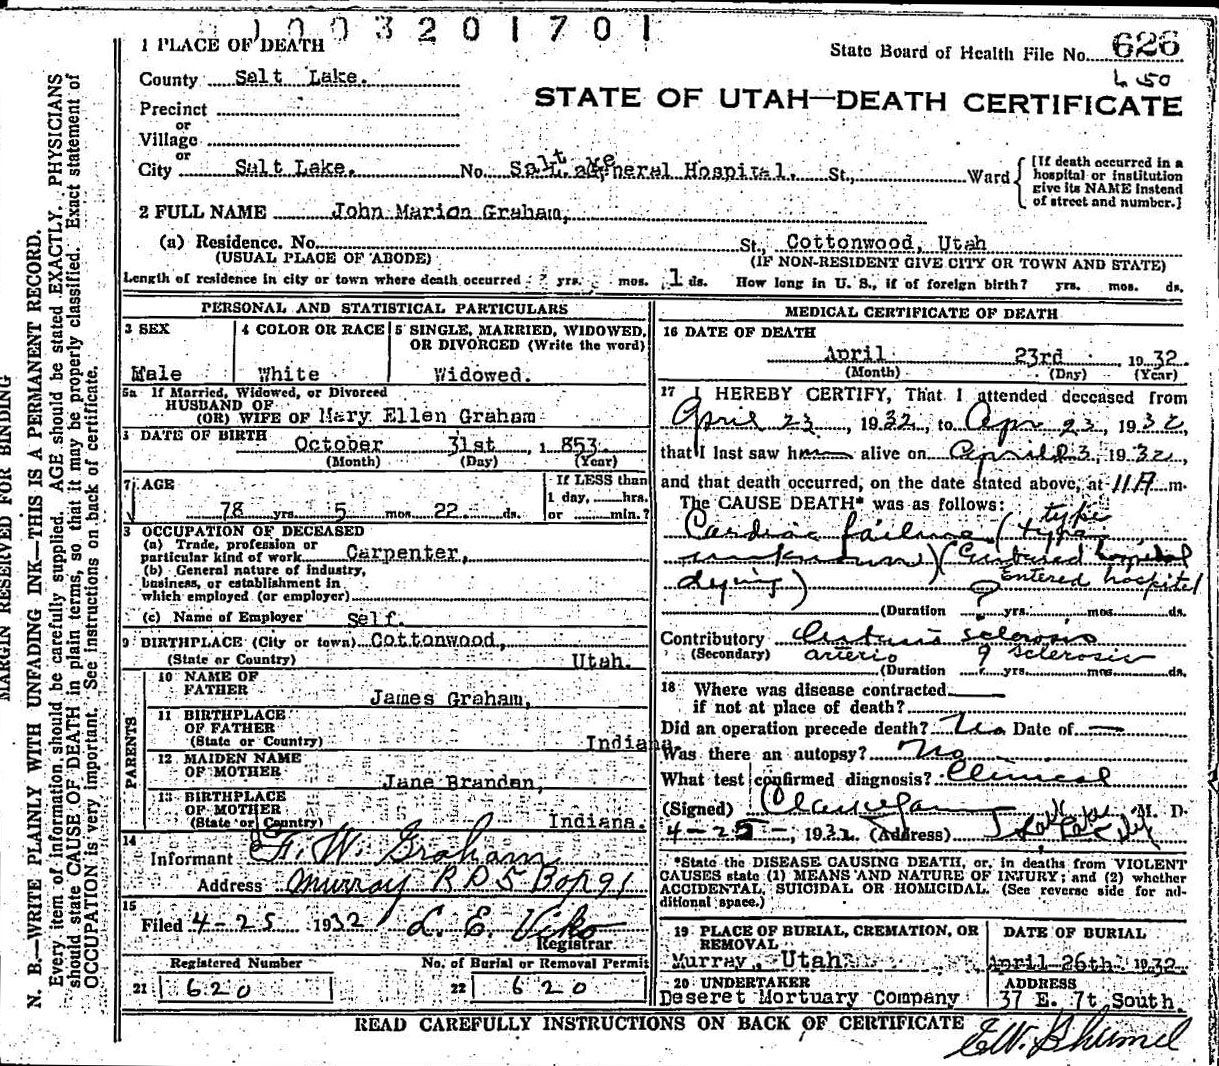 1003201701
1 PLACE OF DEATH
State Board of Health File No. 626
County Salt Lake.
650
STATE OF UTAH—DEATH CERTIFICATE
Precinct
or
Village
or
City Salt Lake. No. Salt Lake General Hospital. St., Ward
[If death occurred in a
hospital or institution
give its NAME instead
of street and number.]
2 FULL NAME John Marion Graham,
(a) Residence. No. St., Cottonwood, Utah
(USUAL PLACE OF ABODE) (IF NON-RESIDENT GIVE CITY OR TOWN AND STATE)
Length of residence in city or town where death occurred ? yrs. mos. 1 ds. How long in U. S., if of foreign birth? yrs. mos. ds.
PERSONAL AND STATISTICAL PARTICULARS
3 SEX 4 COLOR OR RACE 5 SINGLE, MARRIED, WIDOWED,
OR DIVORCED (Write the word)
Male White Widowed.
5a If Married, Widowed, or Divorced
HUSBAND OF
(OR) WIFE OF Mary Ellen Graham
DATE OF BIRTH October 31st, 1853.
(Month) (Day) (Year)
7 AGE If LESS than
1 day, hrs.
78 yrs. 5 mos. 22 ds. or min.?
8 OCCUPATION OF DECEASED
(a) Trade, profession or
particular kind of work Carpenter,
(b) General nature of industry,
business, or establishment in
which employed (or employer)
(c) Name of Employer Self.
9 BIRTHPLACE (City or town) Cottonwood,
(State or Country) Utah.
PARENTS
10 NAME OF
FATHER James Graham,
11 BIRTHPLACE
OF FATHER
(State or Country) Indiana
12 MAIDEN NAME
OF MOTHER Jane Branden,
13 BIRTHPLACE
OF MOTHER
(State or Country) Indiana.
14
Informant F. W. Graham
Address Murray R D 5 Box 91
15
Filed 4-25 1932 L. E. Viko
Registrar
Registered Number No. of Burial or Removal Permit
21 620 22 620
MEDICAL CERTIFICATE OF DEATH
16 DATE OF DEATH
April 23rd 1932.
(Month) (Day) (Year)
17 I HEREBY CERTIFY, That I attended deceased from
April 23, 1932, to Apr 23, 1932,
that I last saw him alive on April 23, 1932,
and that death occurred, on the date stated above, at 11 A m.
The CAUSE DEATH* was as follows:
type
Cardiac failure (type
unknown) (Entered hospital
dying) Entered hospital
(Duration ? yrs. mos. ds.
Contributory Arterio sclerosis
(Secondary) arterio ? sclerosis
(Duration yrs. mos. ds.
18 Where was disease contracted
if not at place of death?
Did an operation precede death? No Date of —
Was there an autopsy? No
What test confirmed diagnosis? Clinical
(Signed) M. D.
4-25-, 1932 (Address) Salt Lake City
*State the DISEASE CAUSING DEATH, or, in deaths from VIOLENT
CAUSES state (1) MEANS AND NATURE OF INJURY; and (2) whether
ACCIDENTAL, SUICIDAL OR HOMICIDAL. (See reverse side for ad-
ditional space.)
19 PLACE OF BURIAL, CREMATION, OR
REMOVAL
DATE OF BURIAL
Murray, Utah April 26th 1932.
20 UNDERTAKER ADDRESS
Deseret Mortuary Company 37 E. 7t South.
READ CAREFULLY INSTRUCTIONS ON BACK OF CERTIFICATE
MARGIN RESERVED FOR BINDING
N. B.—WRITE PLAINLY WITH UNFADING INK—THIS IS A PERMANENT RECORD.
Every item of information should be carefully supplied. AGE should be stated EXACTLY. PHYSICIANS
should state CAUSE OF DEATH in plain terms, so that it may be properly classified. Exact statement of
OCCUPATION is very important. See instructions on back of certificate.